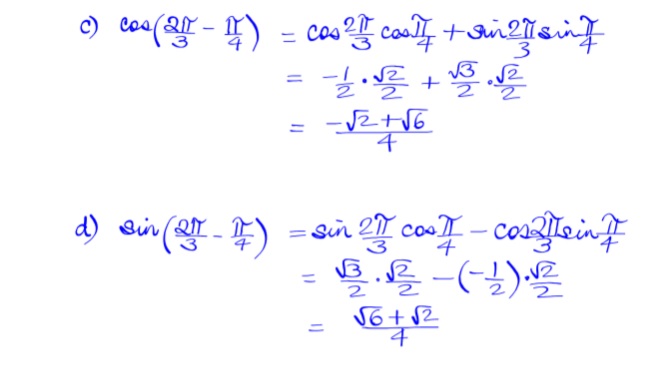 c) cos(2π/3 - π/4) = cos 2π/3 cos π/4 + sin 2π/3 sin π/4
= -1/2 · √2/2 + √3/2 · √2/2
= (-√2+√6)/4
d) sin(2π/3 - π/4) = sin 2π/3 cos π/4 - cos 2π/3 sin π/4
= √3/2 · √2/2 - (-1/2) · √2/2
= (√6+√2)/4